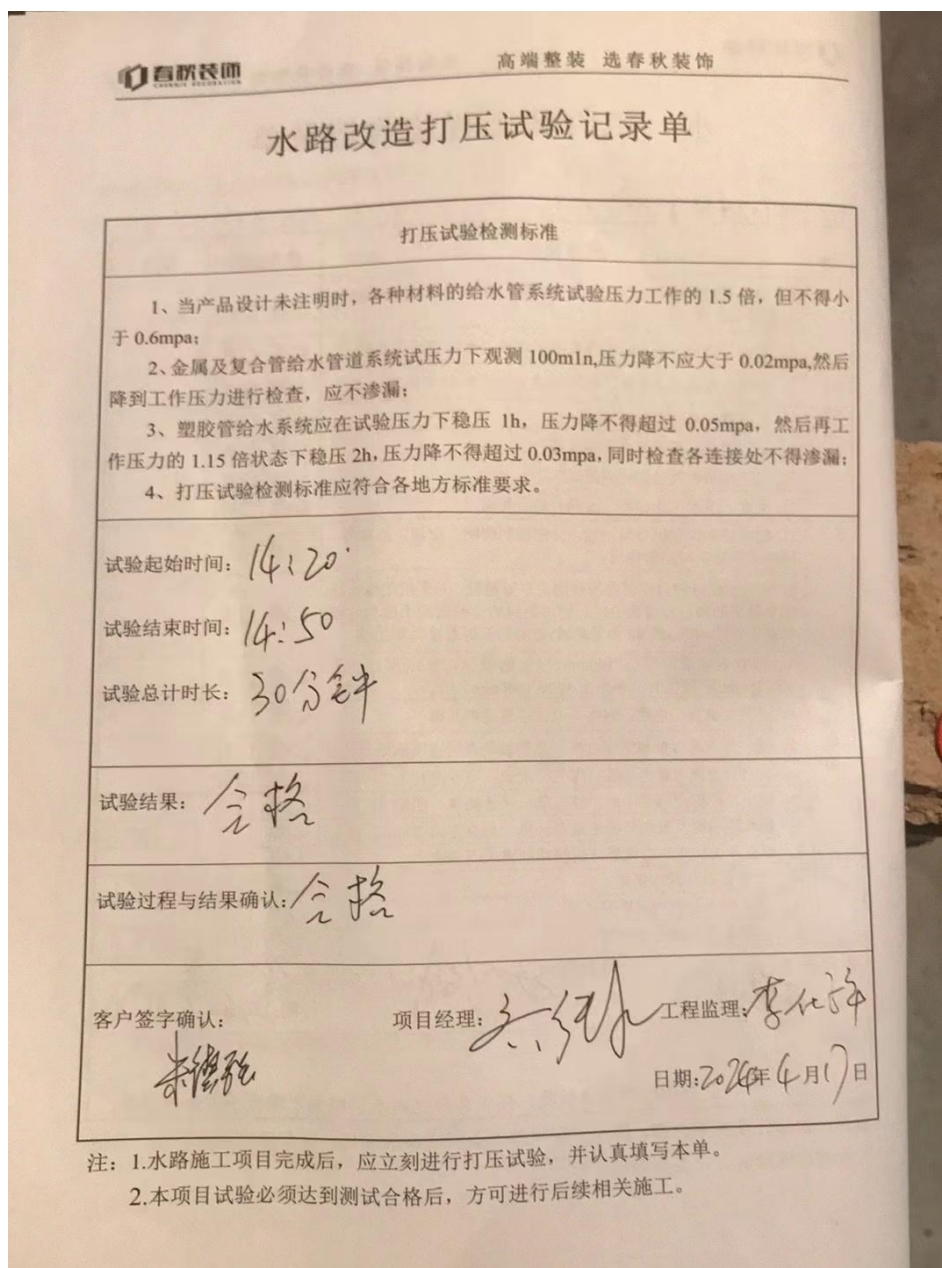 春秋装饰
CHUNQIU DECORATION
高端整装 选春秋装饰
水路改造打压试验记录单
打压试验检测标准
1、当产品设计未注明时，各种材料的给水管系统试验压力工作的 1.5 倍，但不得小
于 0.6mpa；
2、金属及复合管给水管道系统试压力下观测 100m1n,压力降不应大于 0.02mpa,然后
降到工作压力进行检查，应不渗漏；
3、塑胶管给水系统应在试验压力下稳压 1h，压力降不得超过 0.05mpa，然后再工
作压力的 1.15 倍状态下稳压 2h，压力降不得超过 0.03mpa，同时检查各连接处不得渗漏；
4、打压试验检测标准应符合各地方标准要求。
试验起始时间：14:20
试验结束时间：14:50
试验总计时长：30分钟
试验结果：合格
试验过程与结果确认：合格
客户签字确认： 项目经理： 工程监理：李化祥
日期:2024年4月17日
注：1.水路施工项目完成后，应立刻进行打压试验，并认真填写本单。
2.本项目试验必须达到测试合格后，方可进行后续相关施工。